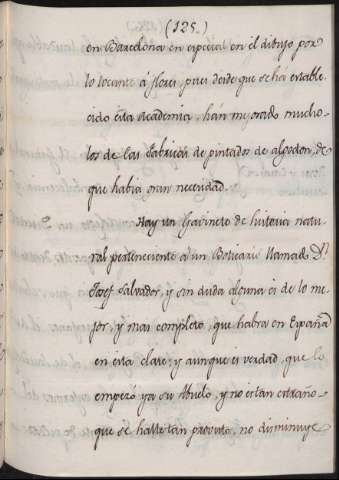 (125.)
en Barcelona en especial en el dibujo por
lo tocante á flores, pues desde que se ha estable-
cido esta Academia, hán mejorado mucho
los de las fabricas de pintados de algodon, de
que habia gran necesidad.
Hay un Gavinete de historia natu-
ral perteneciente á un Boticario llamado Dn.
Josef Salvador, y sin duda alguna es de lo me-
jor, y mas completo, que habra en España
en esta clase; y aunque es verdad, que lo
empezó ya su Abuelo, y no es tan extraño
que se halle tan provisto, no disminuye